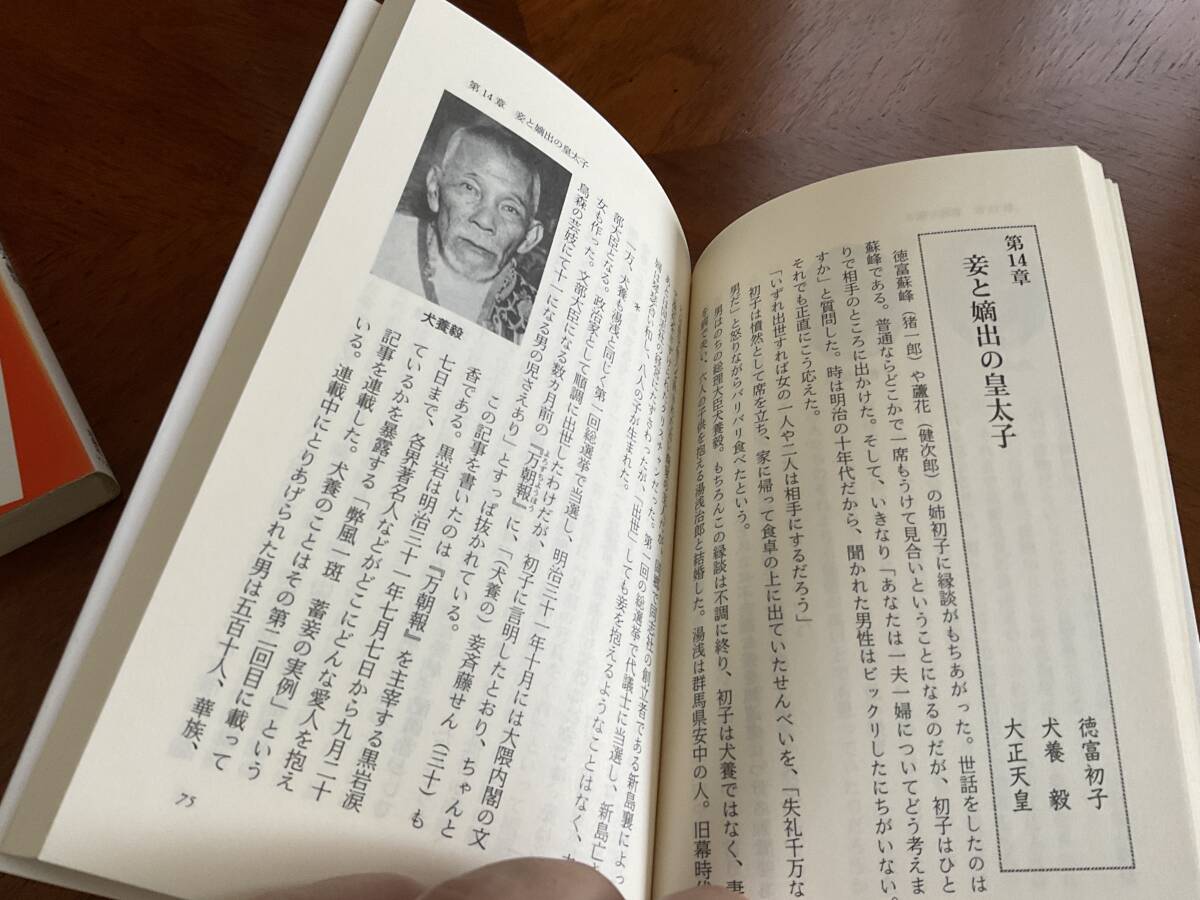 第14章
妾と嫡出の皇太子
徳富初子
犬養 毅
大正天皇
徳富蘇峰（猪一郎）や蘆花（健次郎）の姉初子に縁談がもちあがった。世話をしたのは
蘇峰である。普通ならどこかで一席もうけて見合いということになるのだが、初子はひと
りで相手のところに出かけた。そして、いきなり「あなたは一夫一婦についてどう考えま
すか」と質問した。時は明治の十年代だから、聞かれた男性はビックリしたにちがいない。
それでも正直にこう応えた。
「いずれ出世すれば女の一人や二人は相手にするだろう」
初子は憤然として席を立ち、家に帰って食卓の上に出ていたせんべいを、「失礼千万な
男だ」と怒りながらバリバリ食べたという。
男はのちの総理大臣犬養毅。もちろんこの縁談は不調に終り、初子は犬養ではなく、妻
を病で失い、六人の子供を抱える湯浅治郎と結婚した。湯浅は群馬県安中の人。旧幕時代
第14章 妾と嫡出の皇太子
同志社の創立者である新島襄によっ
クリスチャンだった。第一回の総選挙で代議士に当選し、新島亡
あとは同志社の経営にたずさわったが、「出世」しても妾を抱えるようなことはなく、
八人の子が生まれた。
＊
一方、犬養も湯浅と同じく第一回総選挙で当選し、明治三十一年十月には大隈内閣の文
部大臣となる。政治家として順調に出世したわけだが、初子に言明したとおり、ちゃんと
女も作った。文部大臣になる数カ月前の『万朝報』に、「（犬養の）妾斉藤せん（三十）も
よろずちようほう
烏森の芸妓にて十一になる男の児さえあり」とすっぱ抜かれている。
この記事を書いたのは『万朝報』を主宰する黒岩涙
香である。黒岩は明治三十一年七月七日から九月二十
七日まで、各界著名人などがどこにどんな愛人を抱え
ているかを暴露する「弊風一斑 蓄妾の実例」という
記事を連載した。犬養のことはその第二回目に載って
いる。連載中にとりあげられた男は五百十人、華族、
犬養毅
75